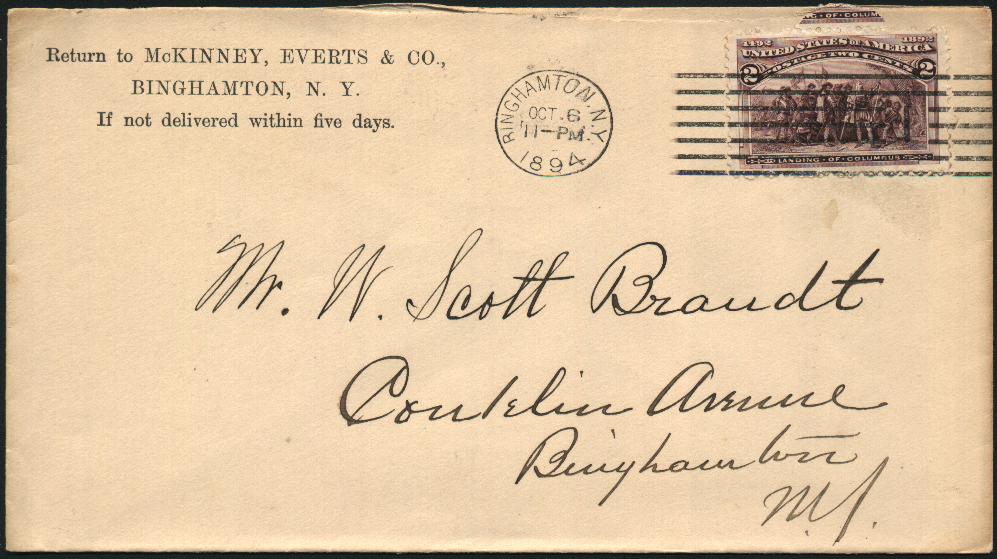 G · OF · COLUM
Return to McKINNEY, EVERTS & CO.,
BINGHAMTON, N. Y.
If not delivered within five days.
BINGHAMTON, N.Y.
OCT. 6
11-PM
1894
1492 1892
UNITED STATES OF AMERICA
POSTAGE TWO CENTS
2 2
LANDING · OF · COLUMBUS
Mr. W. Scott Brandt
Conklin Avenue
Binghamton
N.Y.